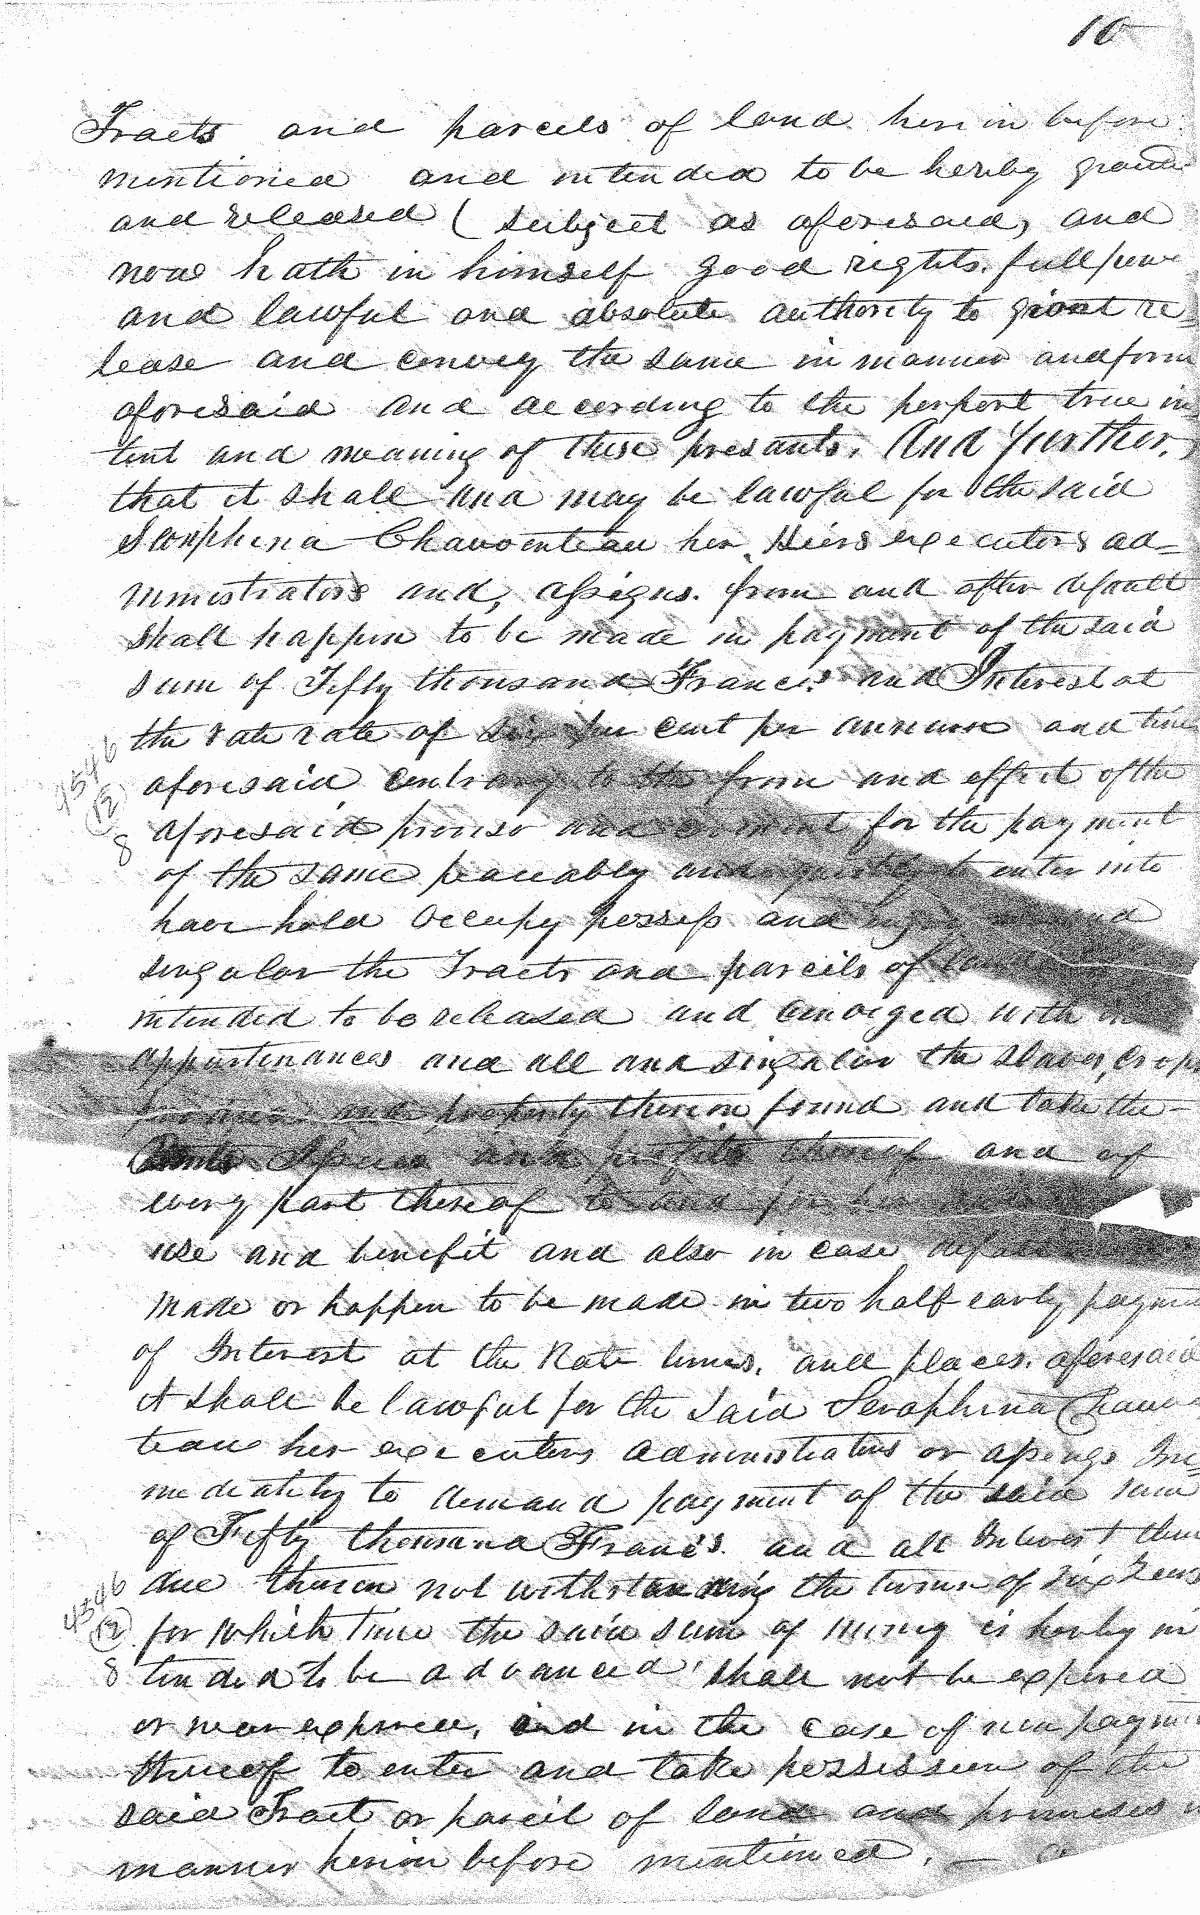 10
Tracts and parcels of land herein before
mentioned and intended to be hereby
and released ( subject as aforesaid, and
now hath in himself good rights. full
and lawful and absolute authority to grant re=
lease and convey the same in manner and form
aforesaid and according to the perport true in=
tent and meaning of these presants. And further,
that it shall and may be lawful for the said
her Hiers executors ad=
ministrators and, assigns. from and after default
shall happen to be made in payment of the said
sum of Fifty thousand Francs and Interest at
the rate rate of six per cent per annum and time
4546
aforesaid contrary to the from and effect of the
12
aforesaid proviso and for the payment
8
of the same peaceably and quietly to enter into
have hold occupy possess and enjoy and
singular the Tracts and parcels of land
intended to be released and with
appurtinances and all and singular the slaves, crops
and property therein found and take the
Rents Issues and profits thereof and of
every part thereof to and for her
use and benefit and also in case
made or happen to be made in two half early
of Interest at the Rate times, and places. aforesaid
it shall be lawful for the said Seraphina
her executors administrators or Im=
mediately to demand payment of the said sum
of Fifty thousand Francs. and all Interest then
4546
due thereon not withstanding the of six Years
12
for which time the said sum of is herby in
8
tended to be advanced, shall not be expired
or near and in the case of non
thereof to enter and take possession of the
said Tract or parcel of land and premises
manner herein before mentioned. —